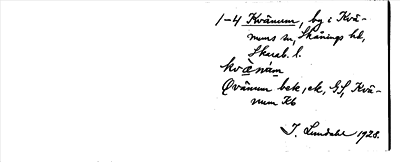 1-4 Kvänum, by i Kvä-
nums sn, Skånings hd,
Skarab. l.
kvä̀nám
Qvänum bek, ek, GS, Kvä-
num Kb
I. Lundahl 1928.